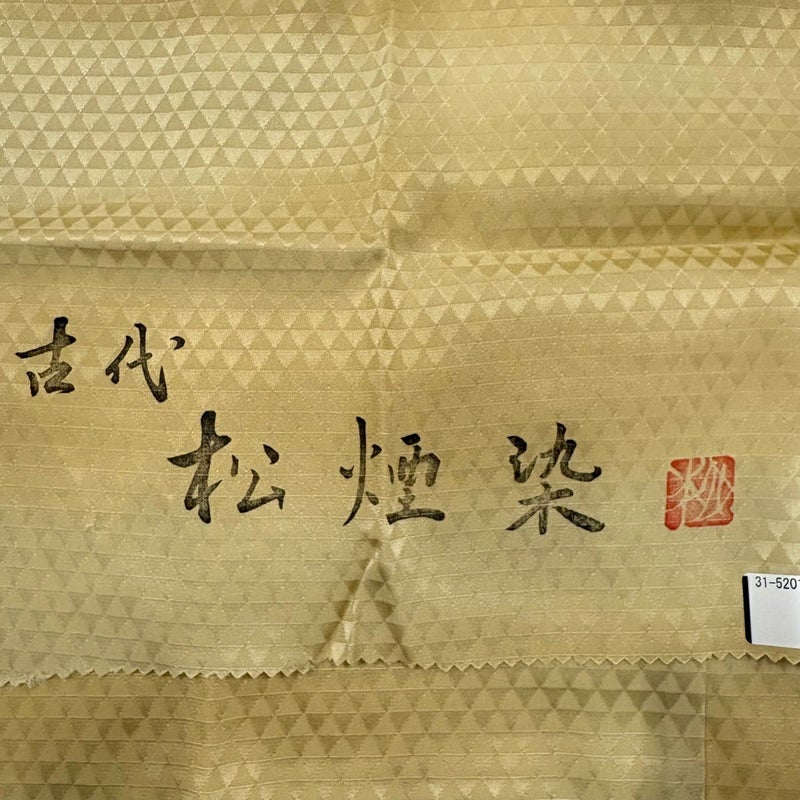 古代
松煙染
31-5201